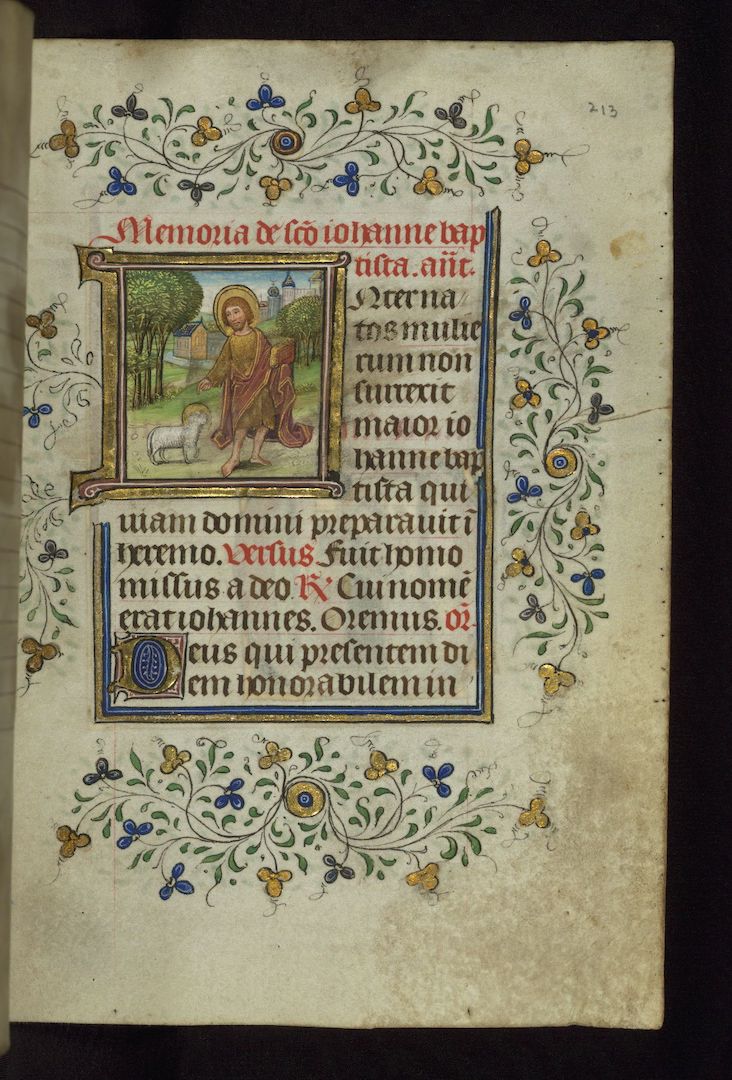 213
Memoria de scō iohanne bap
tista. añt.
Nterna/
tos mulie
rum non
surrexit
maior io
hanne bap
tista qui
uiam domini preparauit ī
heremo. Versus Fuit homo
missus a deo. R̸ Cui nomē
erat iohannes. Oremus. or̄.
Deus qui presentem di
em honorabilem in